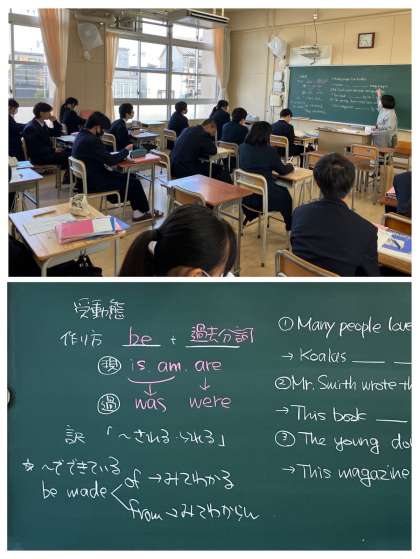 受動態
作り方 be + 過去分詞
現 is am. are
過 was were
訳 「〜される・られる」
☆ 〜でできている
be made
of → みてわかる
from → みてわからん
① Many people love
→ Koalas
② Mr. Smith wrote th
→ This book
③ The young do
→ This magazine